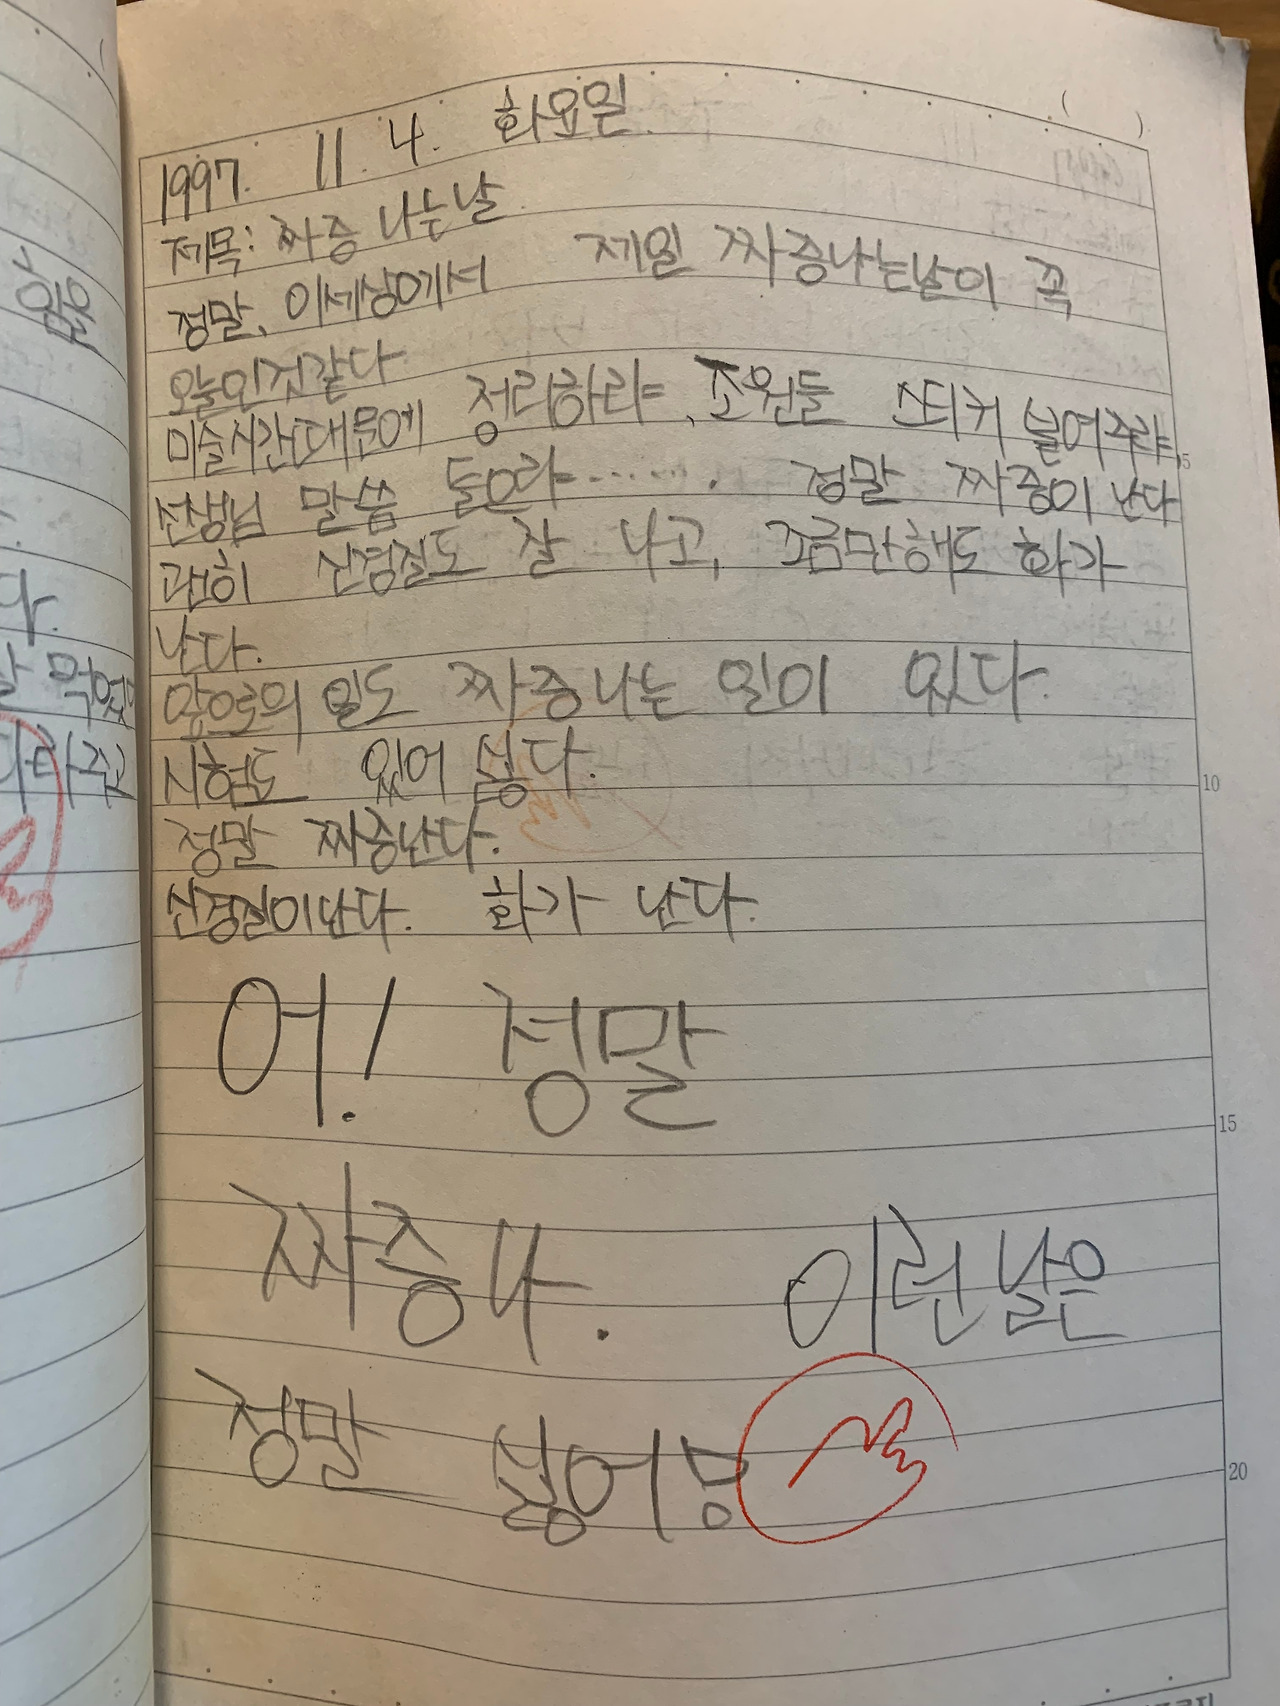 1997. 11. 4. 화요일.
제목: 짜증 나는 날
정말, 이세상에서 제일 짜증나는날이 꼭
오늘인것같다.
미술시간때문에 정리하랴, 조원들 스티커 붙여주랴,
선생님 말씀 들으랴....... 정말 짜증이 난다
괜히 신경질도 잘 나고, 조금만해도 화가
난다.
앞으로의 일도 짜증나는 일이 있다.
시험도 있어 싫다.
정말 짜증난다.
신경질이난다. 화가 난다.
어! 정말
짜증나. 이런 날은
정말 싫어
5
10
15
20